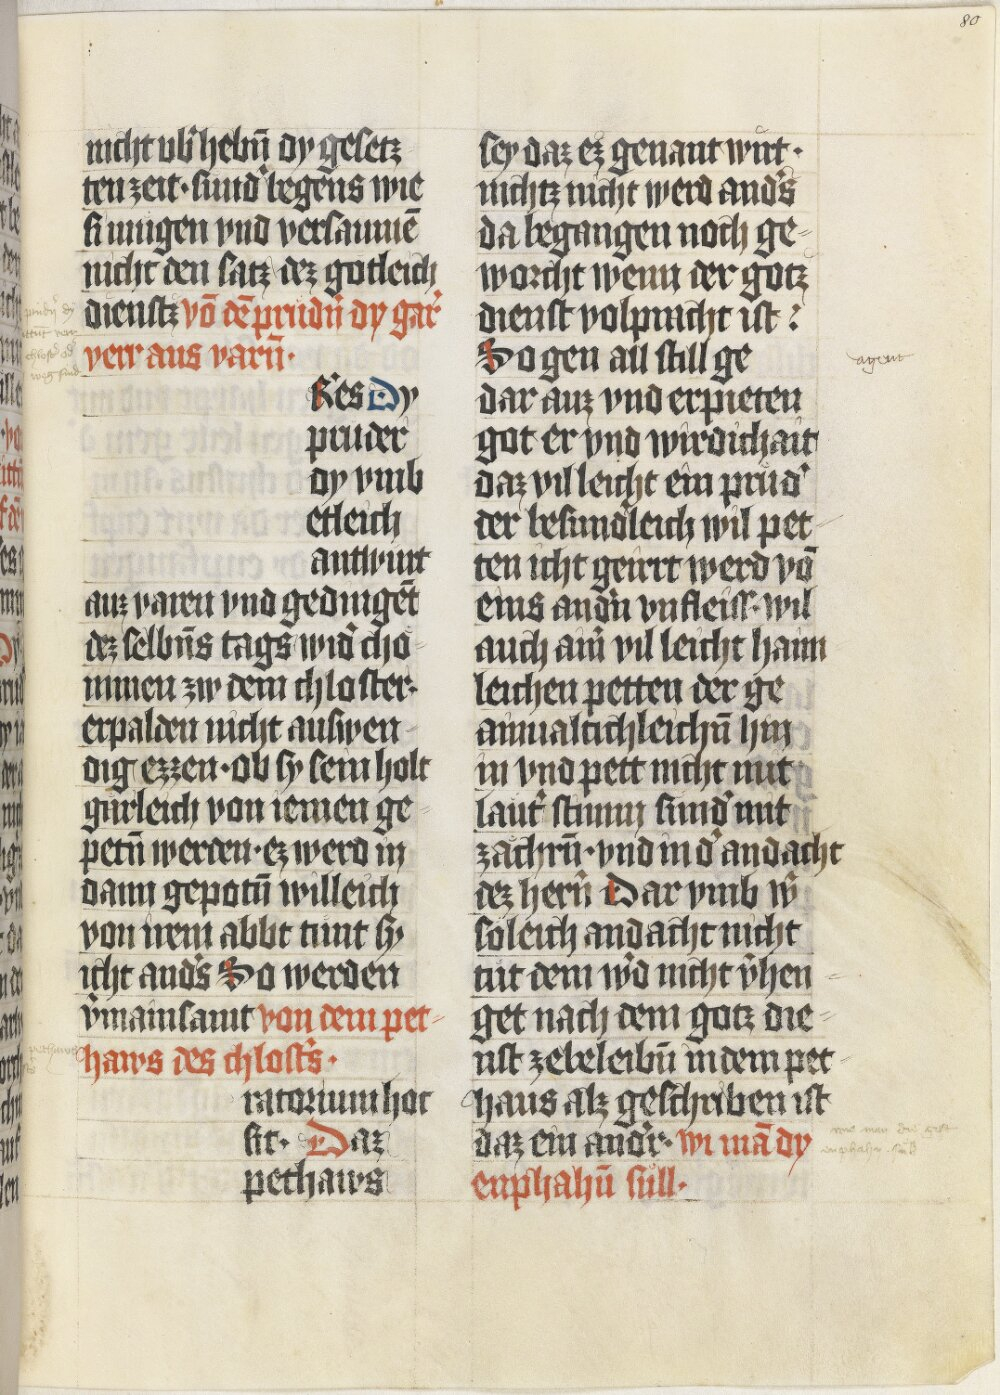 80
nicht vb᷑hebn̄ dy gesetz
ten zeit · sund᷑ begēns wie
si mugen vnd versaumē
nicht den satz dez gotleich
dienstz vō dē prudn̄ dy gar᷑
verr aus varn̄ ·
Res Dy
pruder
dy vmb
etleich
antwurt
auz varen vnd gedingēt
dez selbn̄s tags wid᷑ cho
mmen zw dem chloster ·
erpalden nicht auswen
dig ezzen · ob sy sein holt
gūrleich von iemen ge
petn̄ werden · ez werd in
dann gepotn̄ willeich
von irem abbt tunt sy
icht and᷑s So werden
v᷑mainsamt von dem pet-
haws des chlost᷑s ·
ratorium hoc
sit · Daz
pethaws
sey daz ez genant wirt ·
nichtz nicht werd and᷑s
da begangen noch ge-
worcht wenn der gotz
dienst volpracht ist :
So gen all still ge
agent
dar auz vnd erpieten
got er vnd wirdichait
daz vil leicht ein průd᷑
der besund᷑leich wil pet-
ten icht geirrt werd vō
eins and᷑n vnfleiss · wil
auch aim᷑ vil leicht haim
leichen petten der ge
ainualtichleichn̄ hin
in vnd pett nicht mit
laut᷑ stimm sund᷑ mit
zächrn̄ · vnd in d᷑ andacht
dez hern̄ Dar vmb w᷑
söleich andacht nicht
tůt dem w᷑d nicht v᷑hen-
get nach dem gotz die-
nst ze beleibn̄ in dem pet-
haus alz geschriben ist
daz ein and᷑r · wi mā dy
enphahn̄ sůll ·